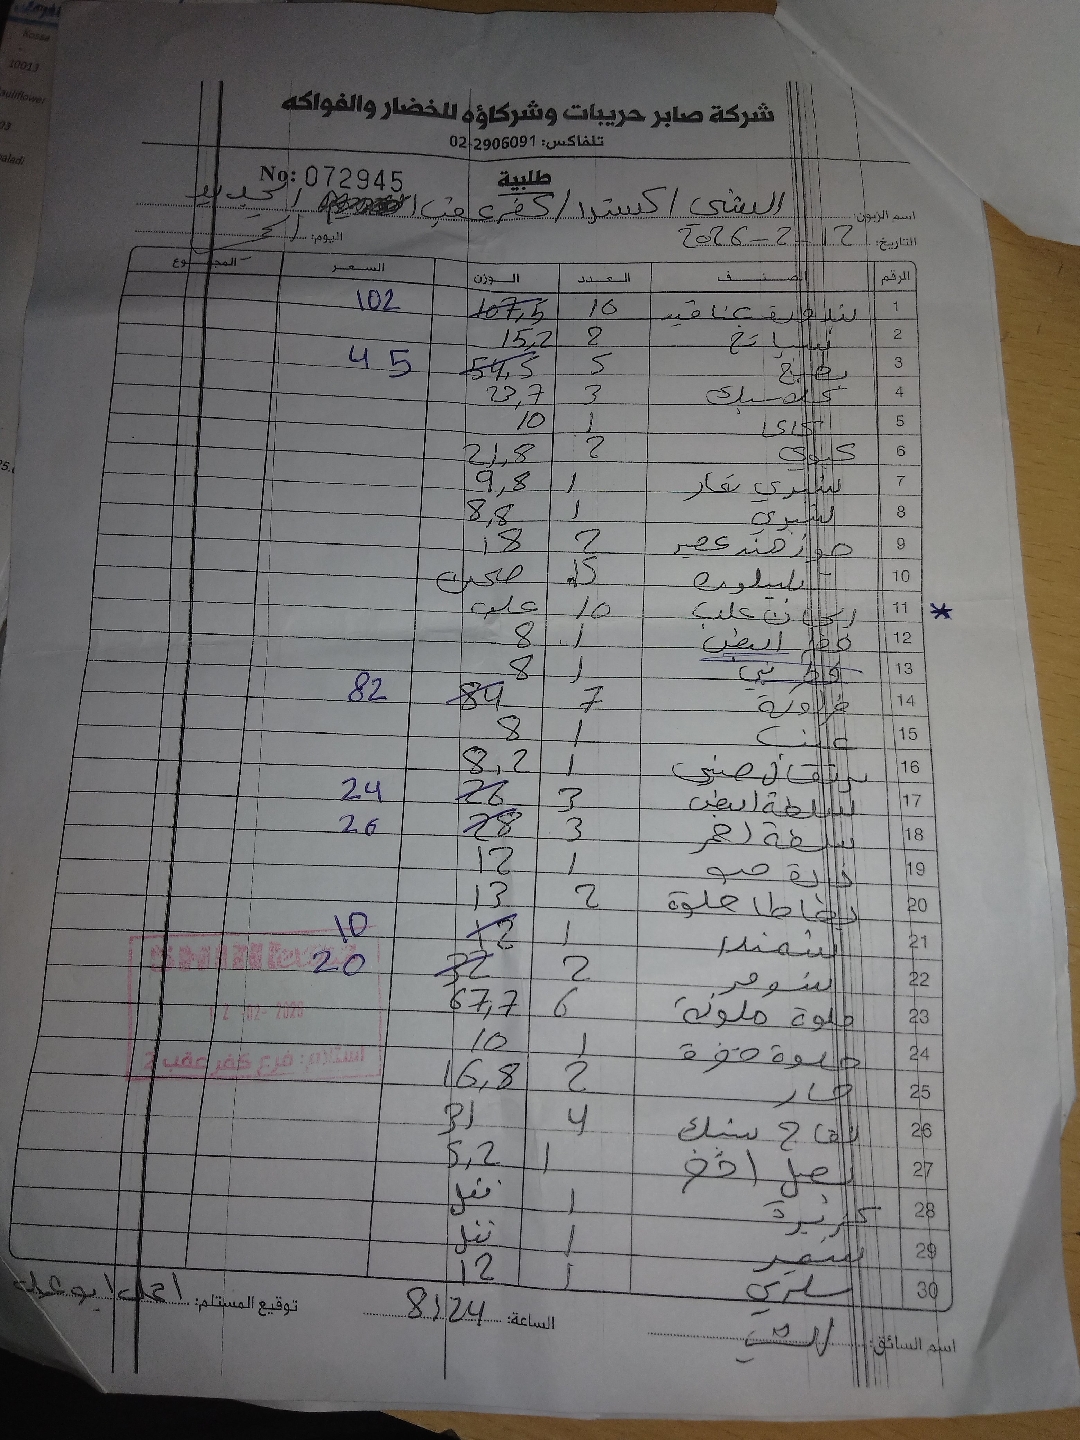 شركة صابر حريبات وشركاؤه للخضار والفواكه
تلفاكس: 02-2906091
طلبية
No: 072945
اسم الزبون: الشني / اكسترا / كفر عقب الجديد
التاريخ: 12-2-2026 اليوم:
الرقم الصنف العدد الوزن السعر المجموع
1 عناقيد 16 107,5 102
2 سبانخ 2 15,2
3 بطيخ 5 54,5 45
4 3 23,7
5 1 10
6 كيوي 2 21,8
7 1 9,8
8 1 8,8
9 جوز هند عصير 2 18
10 15 صحن
11 ريحان علب 10 علب *
12 فطر ابيض 1 8
13 1 8
14 فراولة 7 84 82
15 عنب 1 8
16 برتقال صيني 1 8,2
17 سلطة ابيض 3 26 24
18 سلطة احمر 3 28 26
19 ذرة حب 1 12
20 بطاطا حلوة 2 13
21 شمندر 1 12 10
22 شومر 2 32 20
23 حلوة ملونة 6 67,7
24 حلوة 1 10
25 حار 2 16,8
26 تفاح سبك 4 31
27 بصل اخضر 1 5,2
28 كزبرة 1
29 1
30 سلري 1 12
استلام: فرع كفر عقب 2
اسم السائق: الساعة: 8:24 توقيع المستلم:
Kousa
10013
cauliflower
03
baladi